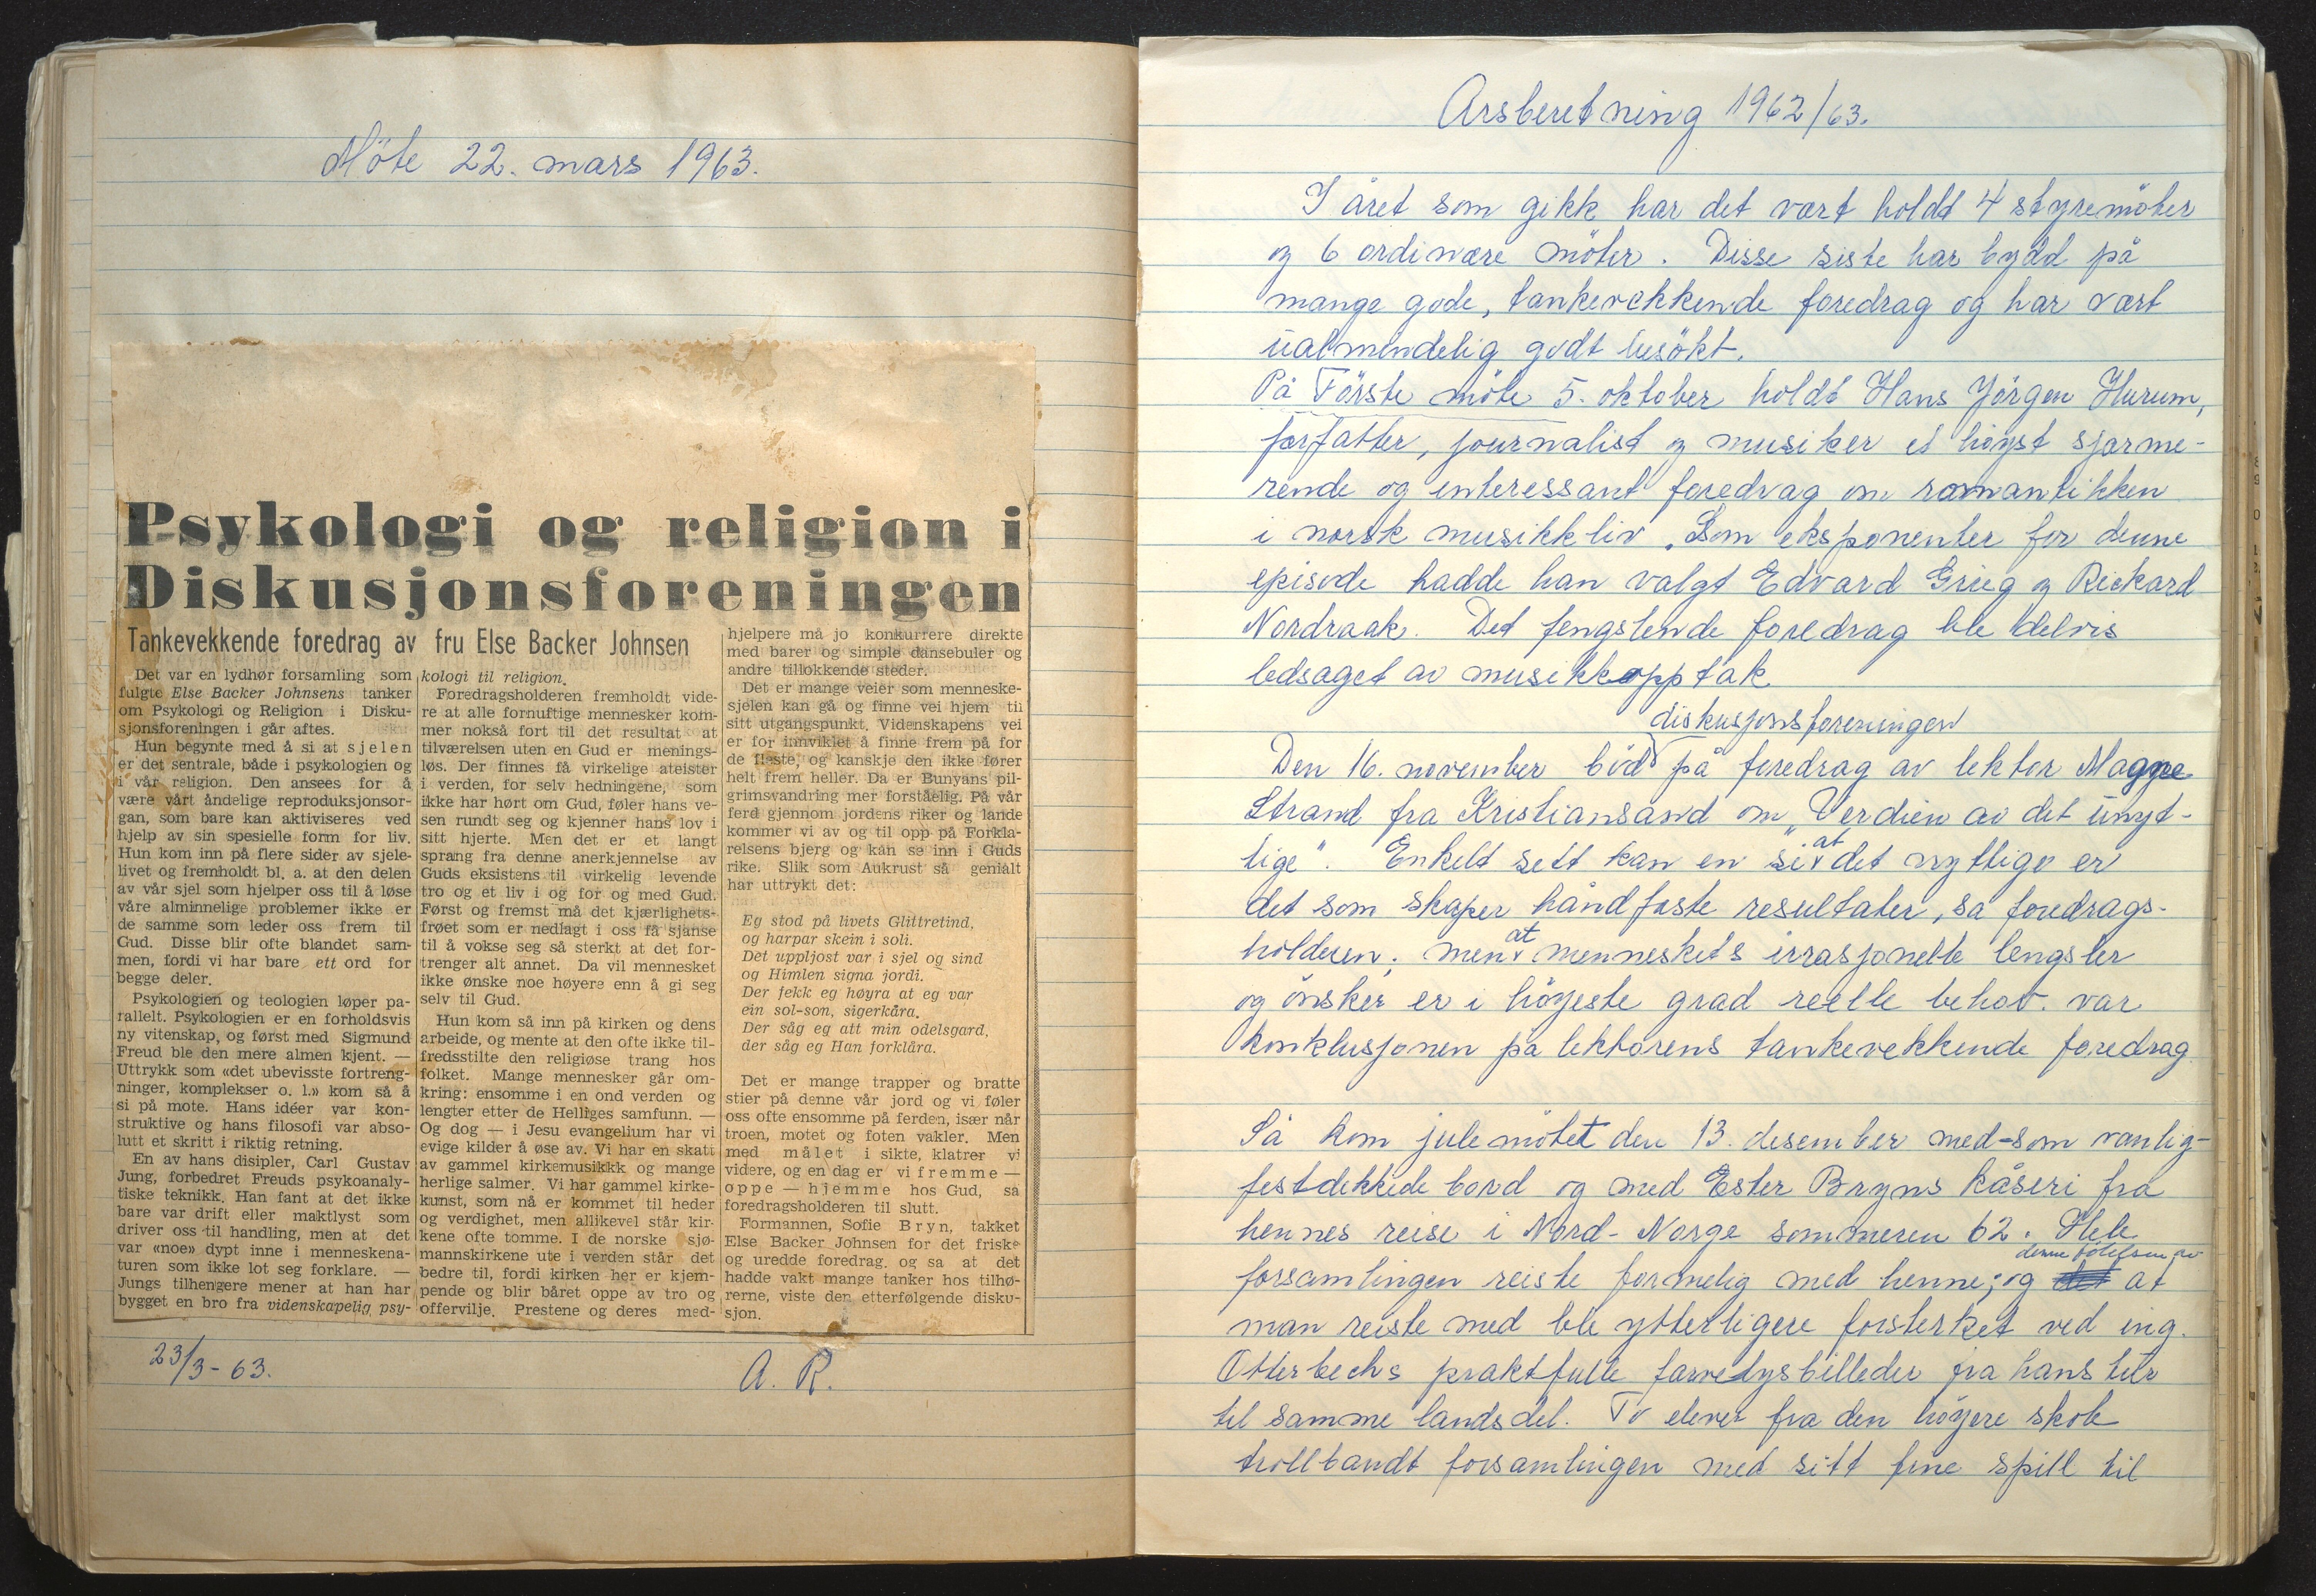 Möte 22. mars 1963.
Psykologi og religion i
Diskusjonsforeningen
Tankevekkende foredrag av fru Else Backer Johnsen
Det var en lydhør forsamling som
fulgte Else Backer Johnsens tanker
om Psykologi og Religion i Disku-
sjonsforeningen i går aftes.
Hun begynte med å si at sjelen
er det sentrale, både i psykologien og
i vår religion. Den ansees for å
være vårt åndelige reproduksjonsor-
gan, som bare kan aktiviseres ved
hjelp av sin spesielle form for liv.
Hun kom inn på flere sider av sjele-
livet og fremholdt bl. a. at den delen
av vår sjel som hjelper oss til å løse
våre alminnelige problemer ikke er
de samme som leder oss frem til
Gud. Disse blir ofte blandet sam-
men, fordi vi har bare ett ord for
begge deler.
Psykologien og teologien løper pa-
rallelt. Psykologien er en forholdsvis
ny vitenskap, og først med Sigmund
Freud ble den mere almen kjent. —
Uttrykk som «det ubevisste fortreng-
ninger, komplekser o. l.» kom så å
si på mote. Hans idéer var kon-
struktive og hans filosofi var abso-
lutt et skritt i riktig retning.
En av hans disipler, Carl Gustav
Jung, forbedret Freuds psykoanaly-
tiske teknikk. Han fant at det ikke
bare var drift eller maktlyst som
driver oss til handling, men at det
var «noe» dypt inne i menneskena-
turen som ikke lot seg forklare. —
Jungs tilhengere mener at han har
bygget en bro fra videnskapelig psy-
kologi til religion.
Foredragsholderen fremholdt vide-
re at alle fornuftige mennesker kom-
mer nokså fort til det resultat at
tilværelsen uten en Gud er menings-
løs. Der finnes få virkelige ateister
i verden, for selv hedningene, som
ikke har hørt om Gud, føler hans ve-
sen rundt seg og kjenner hans lov i
sitt hjerte. Men det er et langt
sprang fra denne anerkjennelse av
Guds eksistens til virkelig levende
tro og et liv i og for og med Gud.
Først og fremst må det kjærlighets-
frøet som er nedlagt i oss få sjanse
til å vokse seg så sterkt at det for-
trenger alt annet. Da vil mennesket
ikke ønske noe høyere enn å gi seg
selv til Gud.
Hun kom så inn på kirken og dens
arbeide, og mente at den ofte ikke til-
fredsstilte den religiøse trang hos
folket. Mange mennesker går om-
kring: ensomme i en ond verden og
lengter etter de Helliges samfunn. —
Og dog — i Jesu evangelium har vi
evige kilder å øse av. Vi har en skatt
av gammel kirkemusikkk og mange
herlige salmer. Vi har gammel kirke-
kunst, som nå er kommet til heder
og verdighet, men allikevel står kir-
kene ofte tomme. I de norske sjø-
mannskirkene ute i verden står det
bedre til, fordi kirken her er kjem-
pende og blir båret oppe av tro og
offervilje. Prestene og deres med-
hjelpere må jo konkurrere direkte
med barer og simple dansebuler og
andre tillokkende steder.
Det er mange veier som menneske-
sjelen kan gå og finne vei hjem til
sitt utgangspunkt. Videnskapens vei
er for innviklet å finne frem på for
de fleste, og kanskje den ikke fører
helt frem heller. Da er Bunyans pil-
grimsvandring mer forståelig. På vår
ferd gjennom jordens riker og lande
kommer vi av og til opp på Forkla-
relsens bjerg og kan se inn i Guds
rike. Slik som Aukrust så genialt
har uttrykt det:
Eg stod på livets Glittretind,
og harpar skein i soli.
Det uppljost var i sjel og sind
og Himlen signa jordi.
Der fekk eg høyra at eg var
ein sol-son, sigerkåra.
Der såg eg att min odelsgard,
der såg eg Han forklåra.
Det er mange trapper og bratte
stier på denne vår jord og vi føler
oss ofte ensomme på ferden, især når
troen, motet og foten vakler. Men
med målet i sikte, klatrer vi
videre, og en dag er vi fremme —
oppe — hjemme hos Gud, sa
foredragsholderen til slutt.
Formannen, Sofie Bryn, takket
Else Backer Johnsen for det friske
og uredde foredrag, og sa at det
hadde vakt mange tanker hos tilhø-
rerne, viste den etterfølgende disku-
sjon.
23/3-63.
A. R.
Arsberetning 1962/63.
I året som gikk har det vært holdt 4 styremöter
og 6 ordinære möter. Disse siste har bydd på
mange gode, tankevekkende foredrag og har vært
ualmindelig godt besökt.
På Förste möte 5. oktober holdt Hans Jörgen Hurum,
forfatter, journalist og musiker et höyst sjarme-
rende og interessant foredrag om romantikken
i norsk musikkliv. Som eksponenter for denne
episode hadde han valgt Edvard Grieg og Rickard
Nordraak. Det fengslende foredrag ble delvis
ledsaget av musikkopptak
diskusjonsforeningen
Den 16. november böd på foredrag av lektor Magne
Strand fra Kristiansand om „Verdien av det unyt-
tige". Enkelt sett kan en si at det nyttige er
det som skaper håndfaste resultater, sa foredrags-
holderen; men at menneskets irrasjonelle lengsler
og önsker er i höyeste grad reelle behov. var
konklusjonen på lektorens tankevekkende foredrag.
Så kom julemötet den 13. desember med-som vanlig-
festdekkede bord og med Ester Bryns kåseri fra
hennes reise i Nord-Norge sommeren 62. Hele
denne fölelsen av
forsamlingen reiste formelig med henne; og det at
man reiste med ble ytterligere forsterket ved ing.
Otterbechs praktfulle farvelysbilleder fra hans tur
til samme landsdel. To elever fra den höyere skole
trollbandt forsamlingen med sitt fine spill til